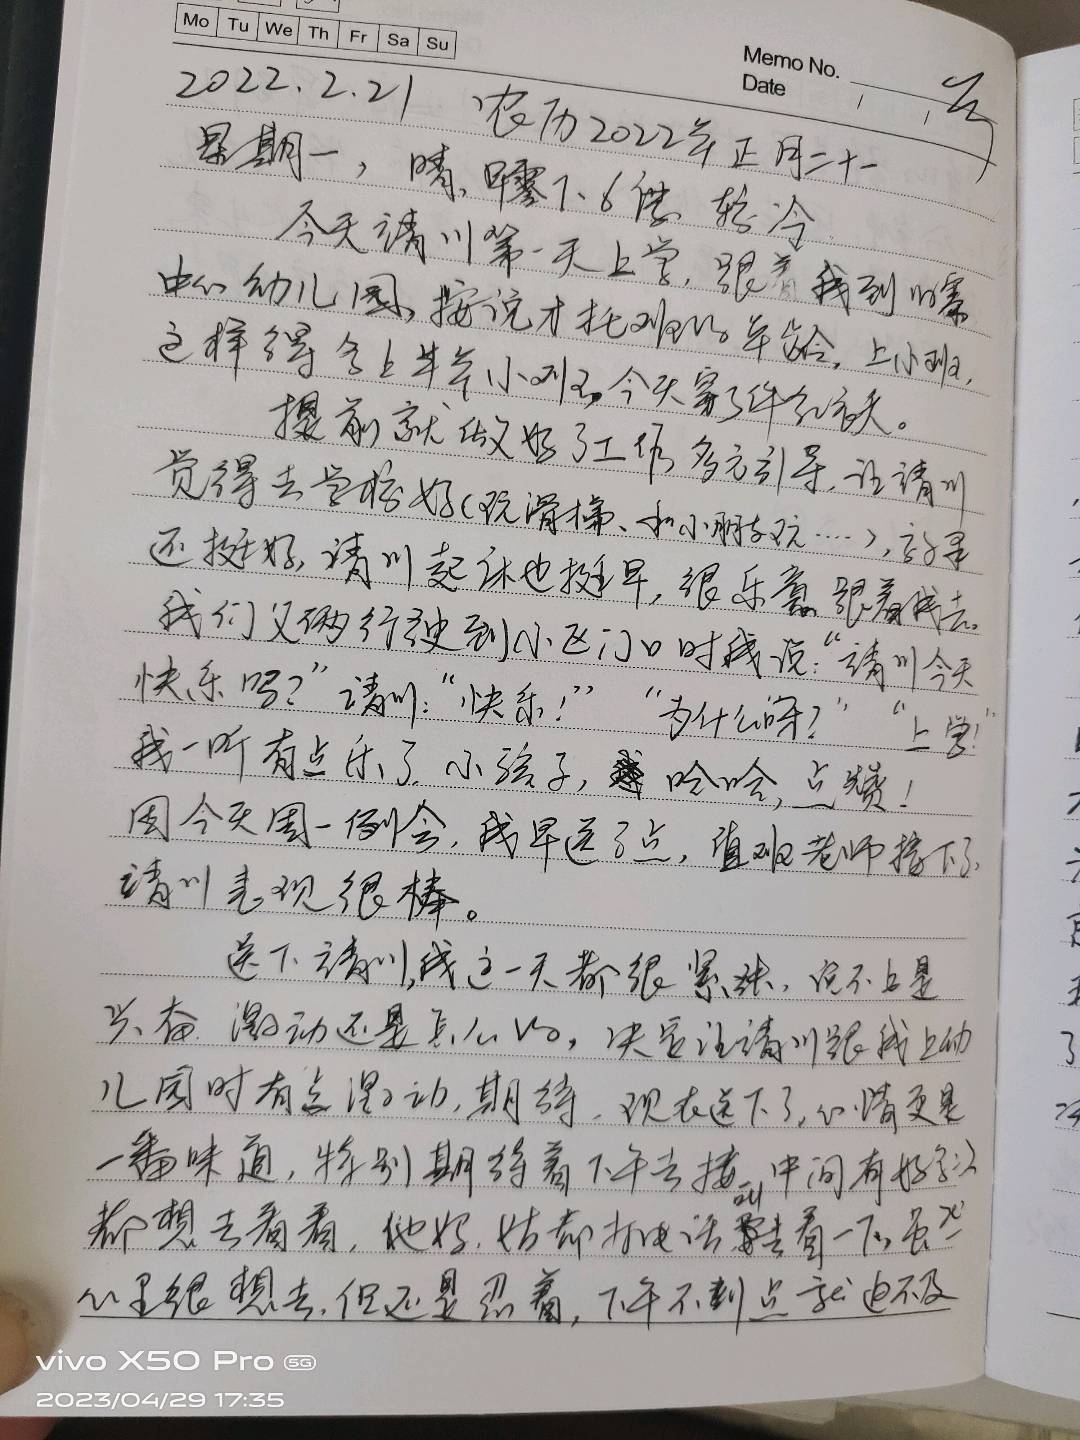 Mo Tu We Th Fr Sa Su
Memo No.
Date
2022.2.21 农历2022年正月二十一
星期一,晴,早零下6度 较冷
今天请川第一天上学,跟着我到
中心幼儿园,按说才托班的年龄,上小班,
这样得多上半年小班。今天穿了件红衣。
提前就做好了工作多方引导,让请川
觉得去学校好(玩滑梯、和小朋友玩……),效果
还挺好,请川起床也挺早,很乐意跟着我去。
我们父俩行驶到小区门口时我说:“请川今天
快乐吗?”请川:“快乐!” “为什么呀?” “上学!”
我一听有点乐了,小孩子,哈哈,点赞!
因今天周一例会,我早送了点,值班老师接下了,
请川表现很棒。
送下请川,我这一天都很紧张,说不上是
兴奋、激动还是怎么的,决定让请川跟我上幼
儿园时有点激动,期待,现在送下了,心情更是
一番味道,特别期待着下午去接,中间有好多次
都想去看看,他妈、姑都打电话叫去看一下,
心里很想去,但还是忍着,下午不到点就迫不及
vivo X50 Pro 5G
2023/04/29 17:35